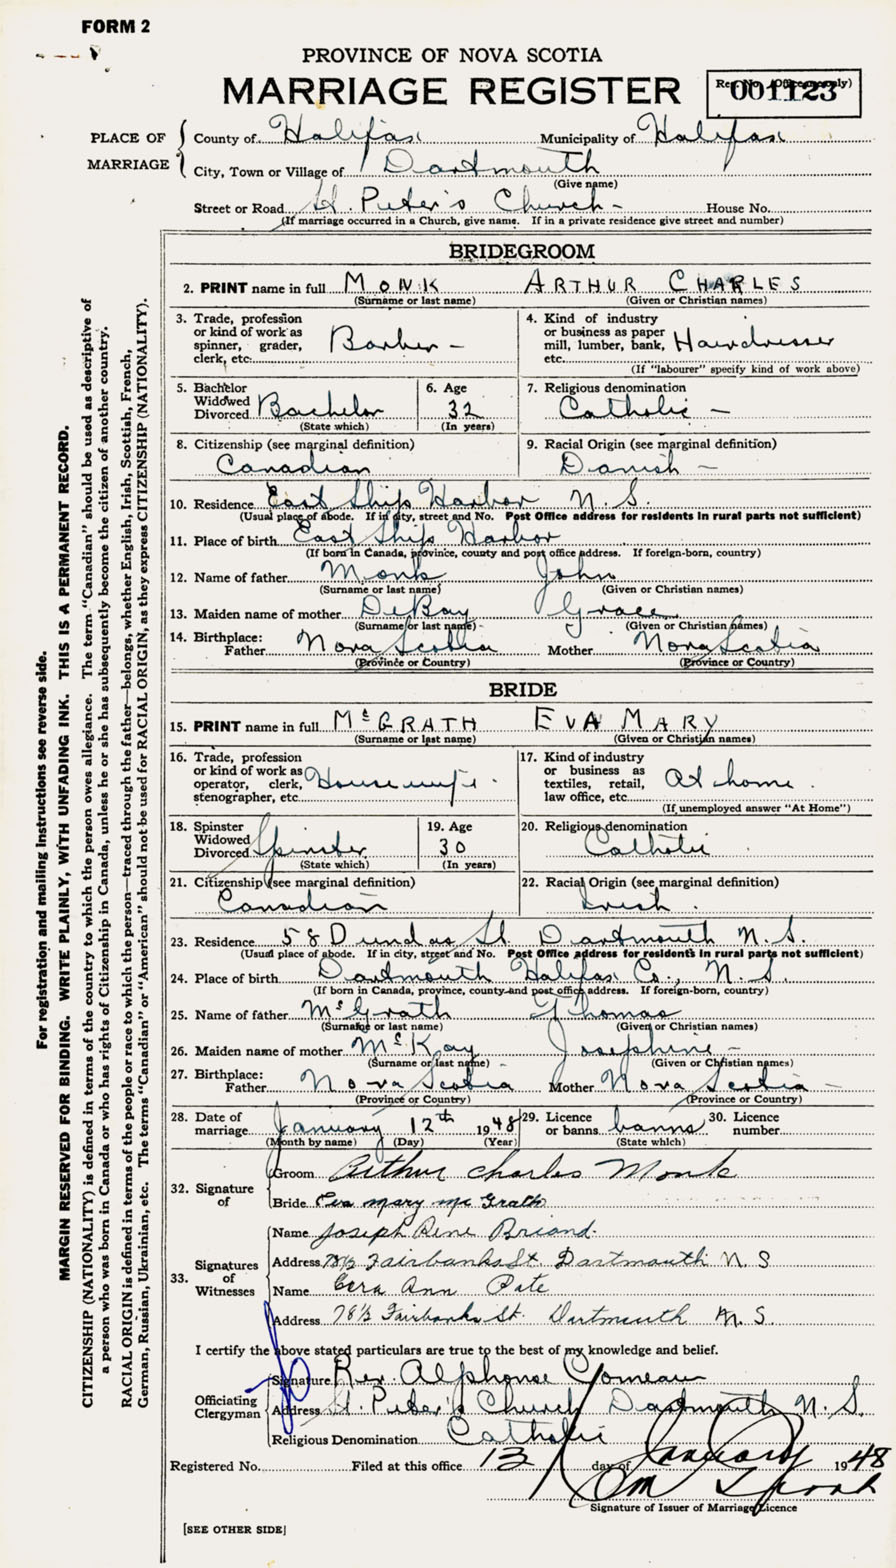 FORM 2
PROVINCE OF NOVA SCOTIA
MARRIAGE REGISTER
001123
PLACE OF MARRIAGE
County of Halifax Municipality of Halifax
City, Town or Village of Dartmouth
(Give name)
Street or Road St. Peter's Church - House No.
(If marriage occurred in a Church, give name. If in a private residence give street and number)
BRIDEGROOM
2. PRINT name in full MONK ARTHUR CHARLES
(Surname or last name) (Given or Christian names)
3. Trade, profession or kind of work as spinner, grader, clerk, etc. Barber -
4. Kind of industry or business as paper mill, lumber, bank, etc. Hairdresser
(If "labourer" specify kind of work above)
5. Bachelor Widowed Divorced Bachelor
(State which)
6. Age 32
(In years)
7. Religious denomination Catholic -
8. Citizenship (see marginal definition) Canadian
9. Racial Origin (see marginal definition) Danish -
10. Residence East Ship Harbor N.S.
(Usual place of abode. If in city, street and No. Post Office address for residents in rural parts not sufficient)
11. Place of birth East Ship Harbor
(If born in Canada, province, county and post office address. If foreign-born, country)
12. Name of father Monk John
(Surname or last name) (Given or Christian names)
13. Maiden name of mother DeBay Grace
(Surname or last name) (Given or Christian names)
14. Birthplace: Father Nova Scotia Mother Nova Scotia
(Province or Country) (Province or Country)
BRIDE
15. PRINT name in full McGRATH EVA MARY
(Surname or last name) (Given or Christian names)
16. Trade, profession or kind of work as operator, clerk, stenographer, etc. Housewife.
17. Kind of industry or business as textiles, retail, law office, etc. At home.
(If unemployed answer "At Home")
18. Spinster Widowed Divorced Spinster
(State which)
19. Age 30
(In years)
20. Religious denomination Catholic
21. Citizenship (see marginal definition) Canadian
22. Racial Origin (see marginal definition) Irish.
23. Residence 58 Dundas St. Dartmouth N.S.
(Usual place of abode. If in city, street and No. Post Office address for residents in rural parts not sufficient)
24. Place of birth Dartmouth Halifax Co., N.S.
(If born in Canada, province, county and post office address. If foreign-born, country)
25. Name of father McGrath Thomas
(Surname or last name) (Given or Christian names)
26. Maiden name of mother McKay Josephine -
(Surname or last name) (Given or Christian names)
27. Birthplace: Father Nova Scotia Mother Nova Scotia -
(Province or Country) (Province or Country)
28. Date of marriage January 12th 1948
(Month by name) (Day) (Year)
29. Licence or banns banns
(State which)
30. Licence number
32. Signature of
Groom Arthur Charles Monk
Bride Eva Mary McGrath
33. Signatures of Witnesses
Name Joseph Rene Briand.
Address 78½ Fairbanks St. Dartmouth N.S
Name Cora Ann Pate
Address 78½ Fairbanks St. Dartmouth N.S.
I certify the above stated particulars are true to the best of my knowledge and belief.
Officiating Clergyman
Signature Rev. Alphonse Comeau
Address St. Peter's Church Dartmouth N.S.
Religious Denomination Catholic
Registered No. Filed at this office 13 day of January 1948
Signature of Issuer of Marriage Licence
[SEE OTHER SIDE]
For registration and mailing instructions see reverse side.
MARGIN RESERVED FOR BINDING. WRITE PLAINLY, WITH UNFADING INK. THIS IS A PERMANENT RECORD.
CITIZENSHIP (NATIONALITY) is defined in terms of the country to which the person owes allegiance. The term "Canadian" should be used as descriptive of
a person who was born in Canada or who has rights of Citizenship in Canada, unless he or she has subsequently become the citizen of another country.
RACIAL ORIGIN is defined in terms of the people or race to which the person—traced through the father—belongs, whether English, Irish, Scottish, French,
German, Russian, Ukrainian, etc. The terms "Canadian" or "American" should not be used for RACIAL ORIGIN, as they express CITIZENSHIP (NATIONALITY).